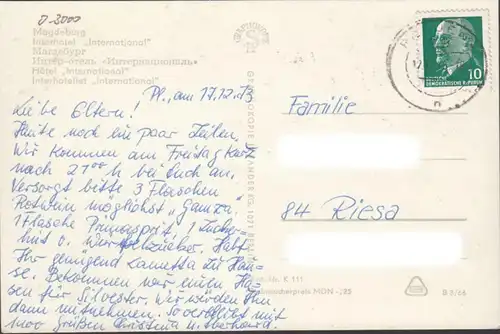 0-3000
Magdeburg
Interhotel „International"
Магдебург
Интер-отель «Интернациональ»
Hôtel „International"
Interhotellet „International"
Pl., am 17.12.73
Liebe Eltern!
Heute noch ein paar Zeilen.
Wir kommen am Freitag kurz
nach 21 00 h bei Euch an.
Versorgt bitte 3 Flaschen
Rotwein möglichst „Gamza".
1 Flasche Primasprit, 1 Zucker-
hut o.
Habt
Ihr genügend Lametta zu Hau-
se. Bekommen wir einen Ha-
sen für Silvester. Wir werden ihn
dann mitnehmen. So verbleibt mit
1000 Grüßen Christina u. Eberhard.
Familie
84 Riesa
10
DEUTSCHE
DEMOKRATISCHE REPUBLIK
K 111
MDN -,25
B 8/66